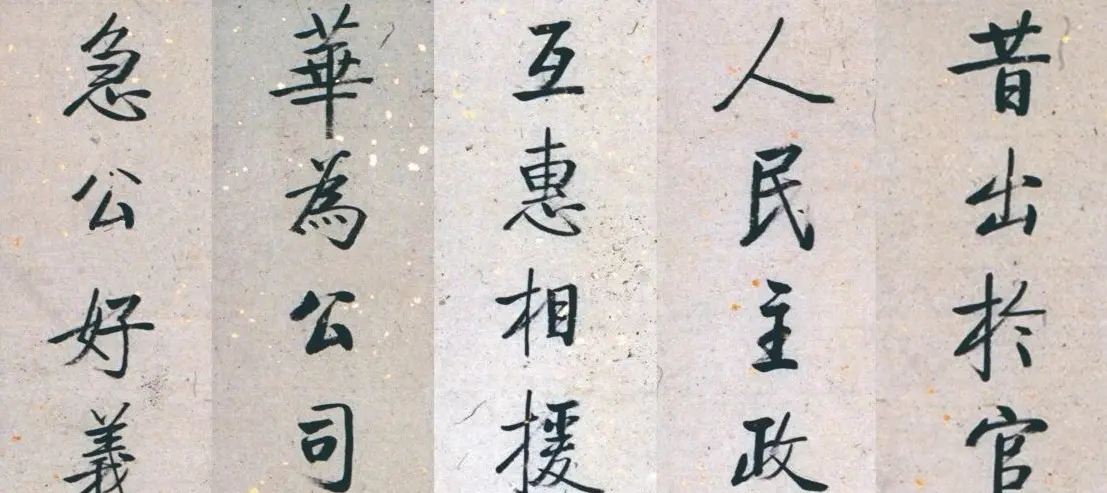 昔出於官
人民主政
互惠相援
華為公司
急公好義